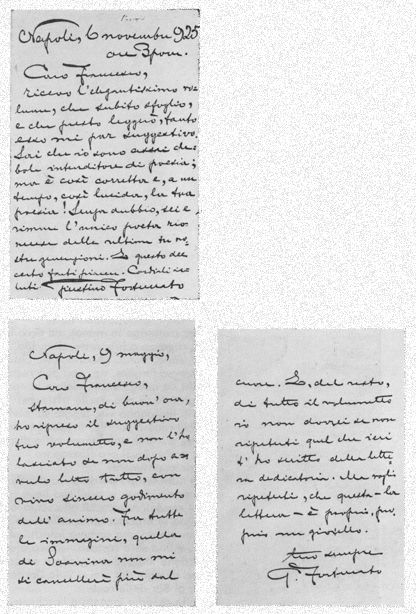 Napoli, 6 novembre 925
ore 3 pom.
Caro Francesco,
ricevo l'elegantissimo vo-
lume, che subito sfoglio,
e che presto leggerò, tanto
esso mi par suggestivo.
Sai che io sono assai de-
bole intenditore di poesia;
ma è così corretta e, a un
tempo, così lucida, la tua
poesia! Senza dubbio, sei e
rimani l'unico poeta rio-
nerese delle ultime tre no-
stre generazioni. E questo dee
certo farti piacere. Cordiali sa-
luti Giustino Fortunato
Napoli, 9 maggio,
Caro Francesco,
stamane, di buon'ora,
ho ripreso il suggestivo
tuo volumetto, e non l'ho
lasciato se non dopo a-
verlo letto tutto, con
vivo sincero godimento
dell'animo. Fra tutte
le immagini, quella
di mi
si cancellerà più dal
cuore. E, del resto,
di tutto il volumetto
io non dovrei se non
ripeterti quel che ieri
t'ho scritto della lette-
ra dedicatoria. Ma vogli
ripeterti, che questa - la
lettera - è proprio, pro-
prio un gioiello.
tuo sempre
G. Fortunato